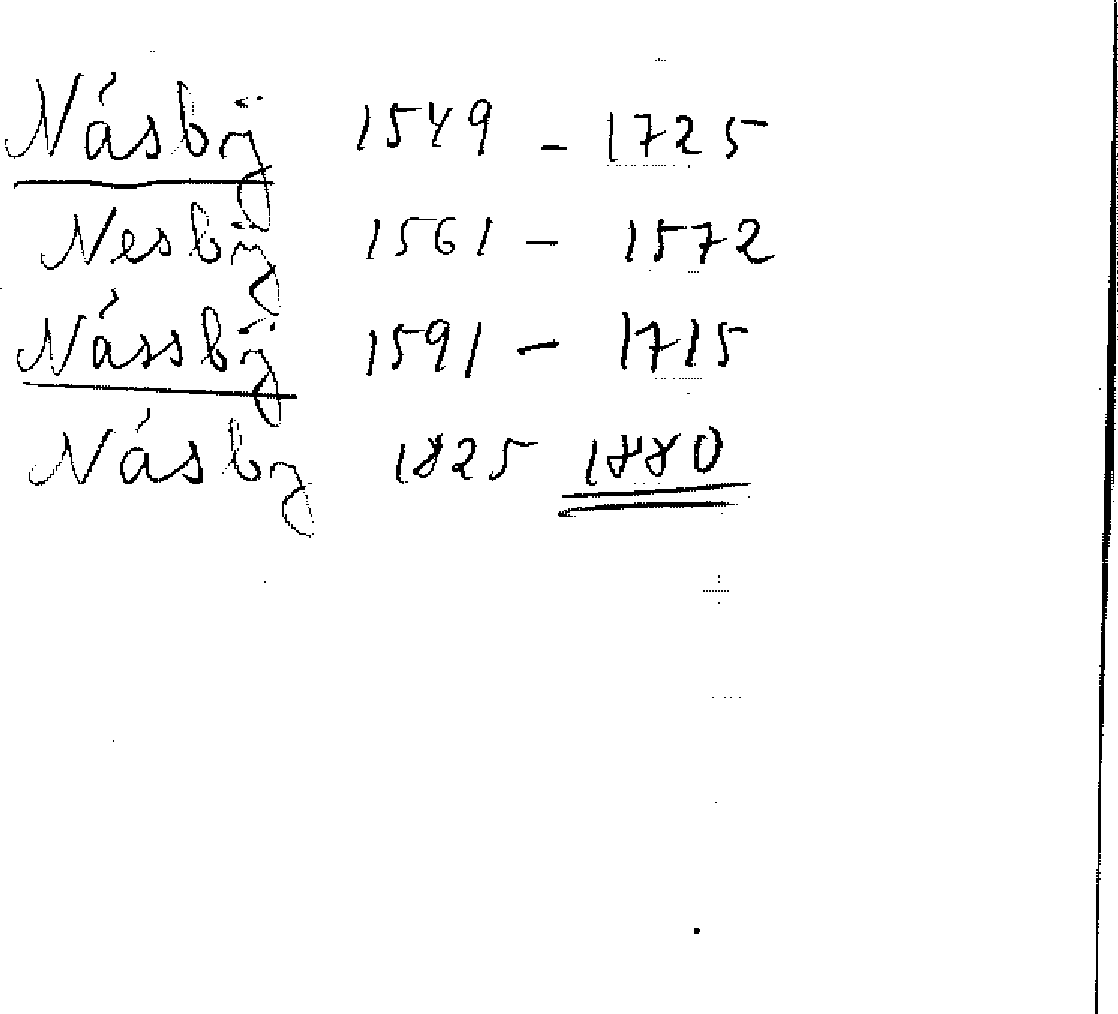 Násbÿ 1549 – 1725
Nesbÿ 1561 – 1572
Nássbÿ 1591 – 1715
Násby 1825 1880